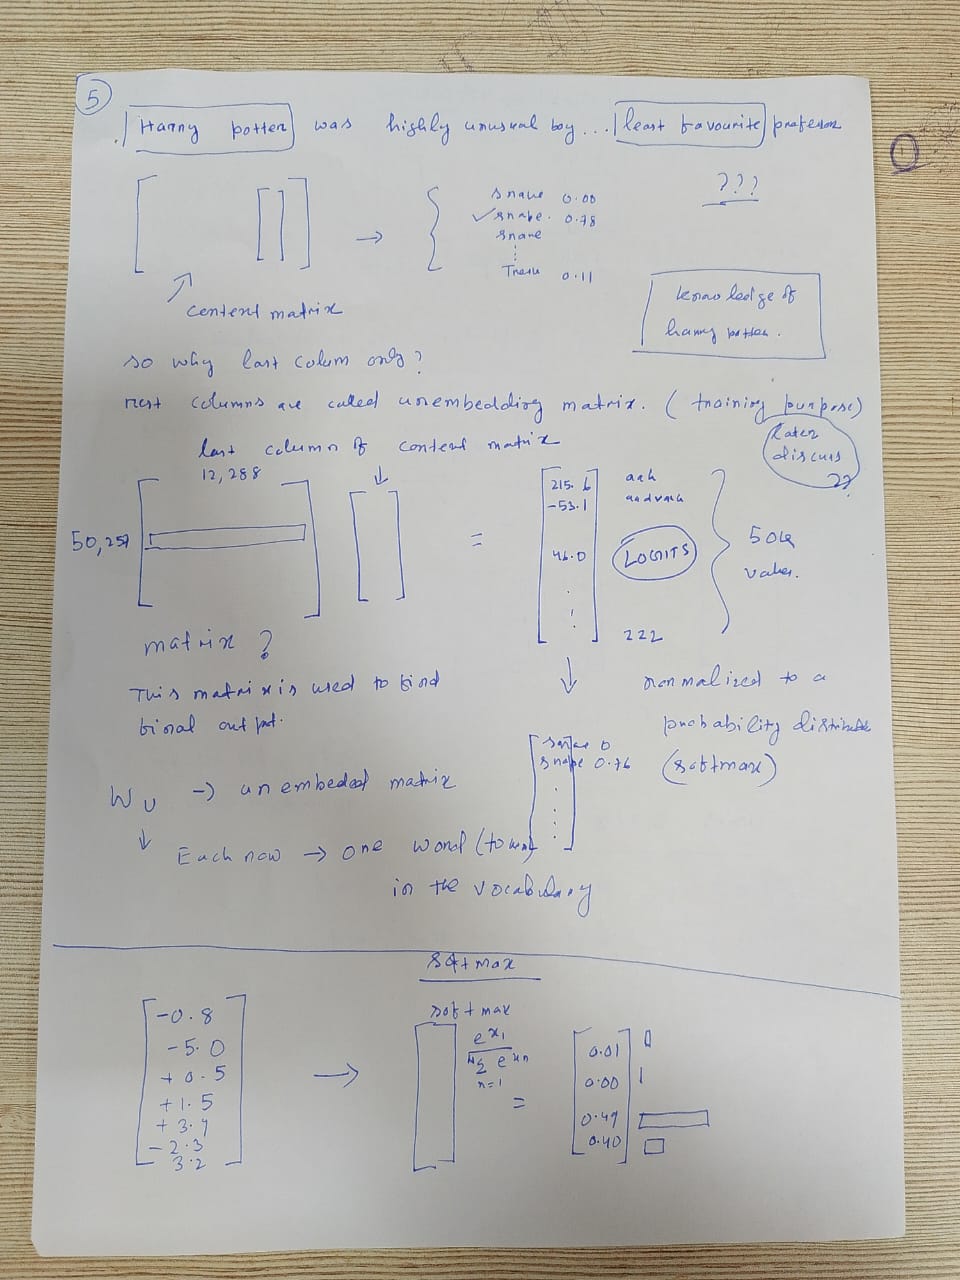 5
Harry potter was highly unusual boy ... least favourite professor
snake 0.00
✓ snape. 0.78
snare
⋮
0.11
→
???
context matrix
knowledge of
harry potter.
so why last colum only?
rest columns are called unembedding matrix. (training purpose)
later
discuss
??
last column of context matrix
12,288
50,257
=
215.6 aah
-53.1 aardvark
46.0
LOGITS
50k
values.
222
matrix?
This matrix is used to find
final output.
normalized to a
probability distribute
(softmax)
0
snape 0.76
WU → unembeded matrix
Each row → one word (token)
in the vocabulary
softmax
softmax
-0.8
-5.0
+0.5
+1.5
+3.4
-2.3
3.2
→
e^x1
N Σ e^xn
n=1
=
0.01
0.00
0.49
0.40